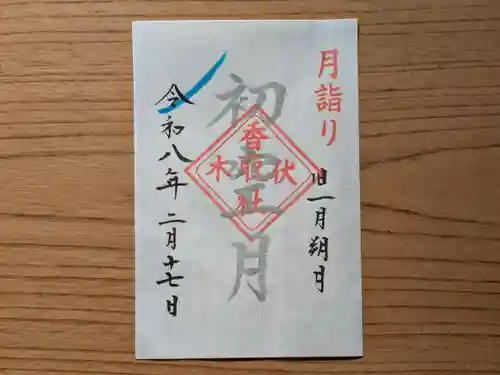 月詣り
旧一月朔月
初空月
香取社
伏木
令和八年二月十七日